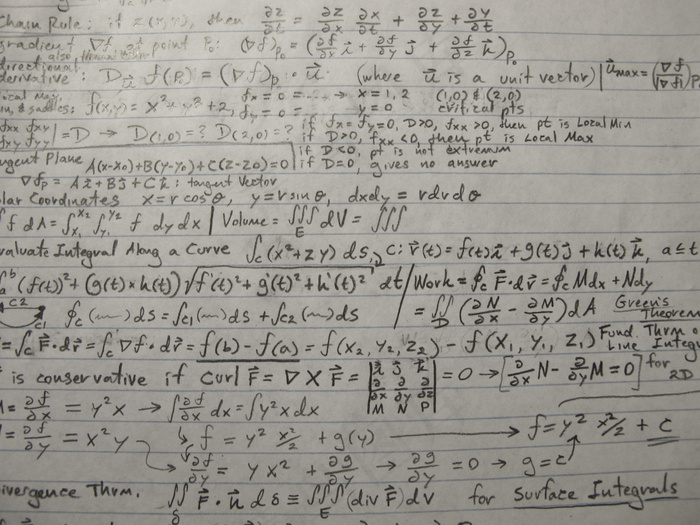 Chain Rule: if z(x,y), then ∂z/∂t = ∂z/∂x ∂x/∂t + ∂z/∂y + ∂y/∂t
gradient ∇f at point P₀: (∇f)P₀ = (∂f/∂x i + ∂f/∂y j + ∂f/∂z k)P₀
directional also,
derivative: Dᵤ f(P₀) = (∇f)P₀ · u (where u is a unit vector) | u max = (∇f/|∇f|)P₀
f(x,y)= + 2, fx = 0 = ... → x = 1, 2 (1,0) & (2,0)
min, & saddles: fy = 0 = ... y = 0 critical pts
|fxx fxy| if fx = fy = 0, D>0, fxx >0, then pt is Local Min
|fxy fyy| = D → D(1,0) = ? D(2,0) = ? if D>0, fxx <0, then pt is Local Max
if D<0, pt is not extremum
Tangent Plane A(x-x₀)+B(y-y₀)+C(z-z₀)=0 if D=0, gives no answer
∇fp = Ai + Bj + Ck : tangent Vector
Polar Coordinates x = r cos θ, y = r sin θ, dxdy = r dr dθ
f dA = ∫x₁^x₂ ∫y₁^y₂ f dy dx | Volume = ∭E dV = ∭
Evaluate Integral Along a Curve ∫c (x²+zy) ds, C: r(t) = f(t)i + g(t)j + h(t)k, a ≤ t
∫a^b (f(t))² + (g(t) × h(t)) √f'(t)² + g'(t)² + h'(t)² dt / Work = ∮c F·dr = ∮c Mdx + Ndy
C2 C1 ∮c (~) ds = ∫c1 (~) ds + ∫c2 (~) ds = ∬D (∂N/∂x − ∂M/∂y) dA Green's Theorem
= ∫c F·dr = ∫c ∇f·dr = f(b) − f(a) = f(x₂, y₂, z₂) − f(x₁, y₁, z₁) Fund. Thrm o
Line Integ
is conservative if curl F = ∇ × F = |i j k; ∂/∂x ∂/∂y ∂/∂z; M N P| = 0 → [∂/∂x N − ∂/∂y M = 0] for 2D
M = ∂f/∂x = y²x → ∫∂f/∂x dx = ∫y²x dx
N = ∂f/∂y = x²y f = y² x²/2 + g(y) → f = y² x²/2 + c
∂f/∂y = y x² + ∂g/∂y → ∂g/∂y = 0 → g = c
Divergence Thrm. ∬δ F · n dδ ≡ ∭E (div F) dV for Surface Integrals